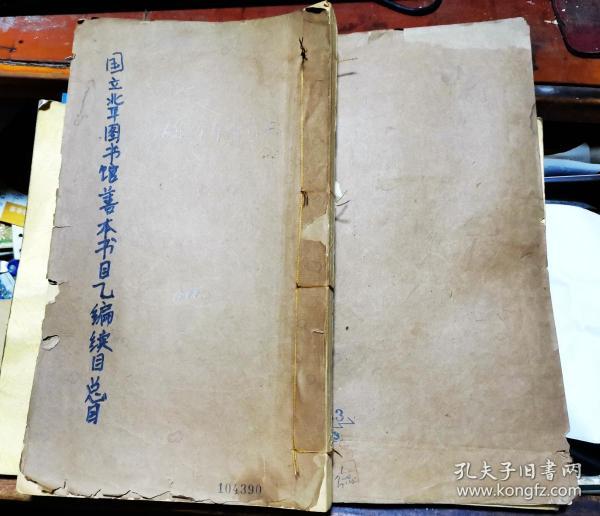 国立北平图书馆善本书目乙编续目总目
104390
3
孔夫子旧书网
www.kongfz.com